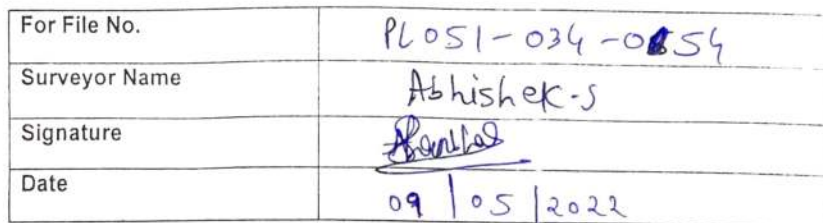 For File No. PL051-034-0054
Surveyor Name Abhishek.S
Signature
Date 09/05/2022